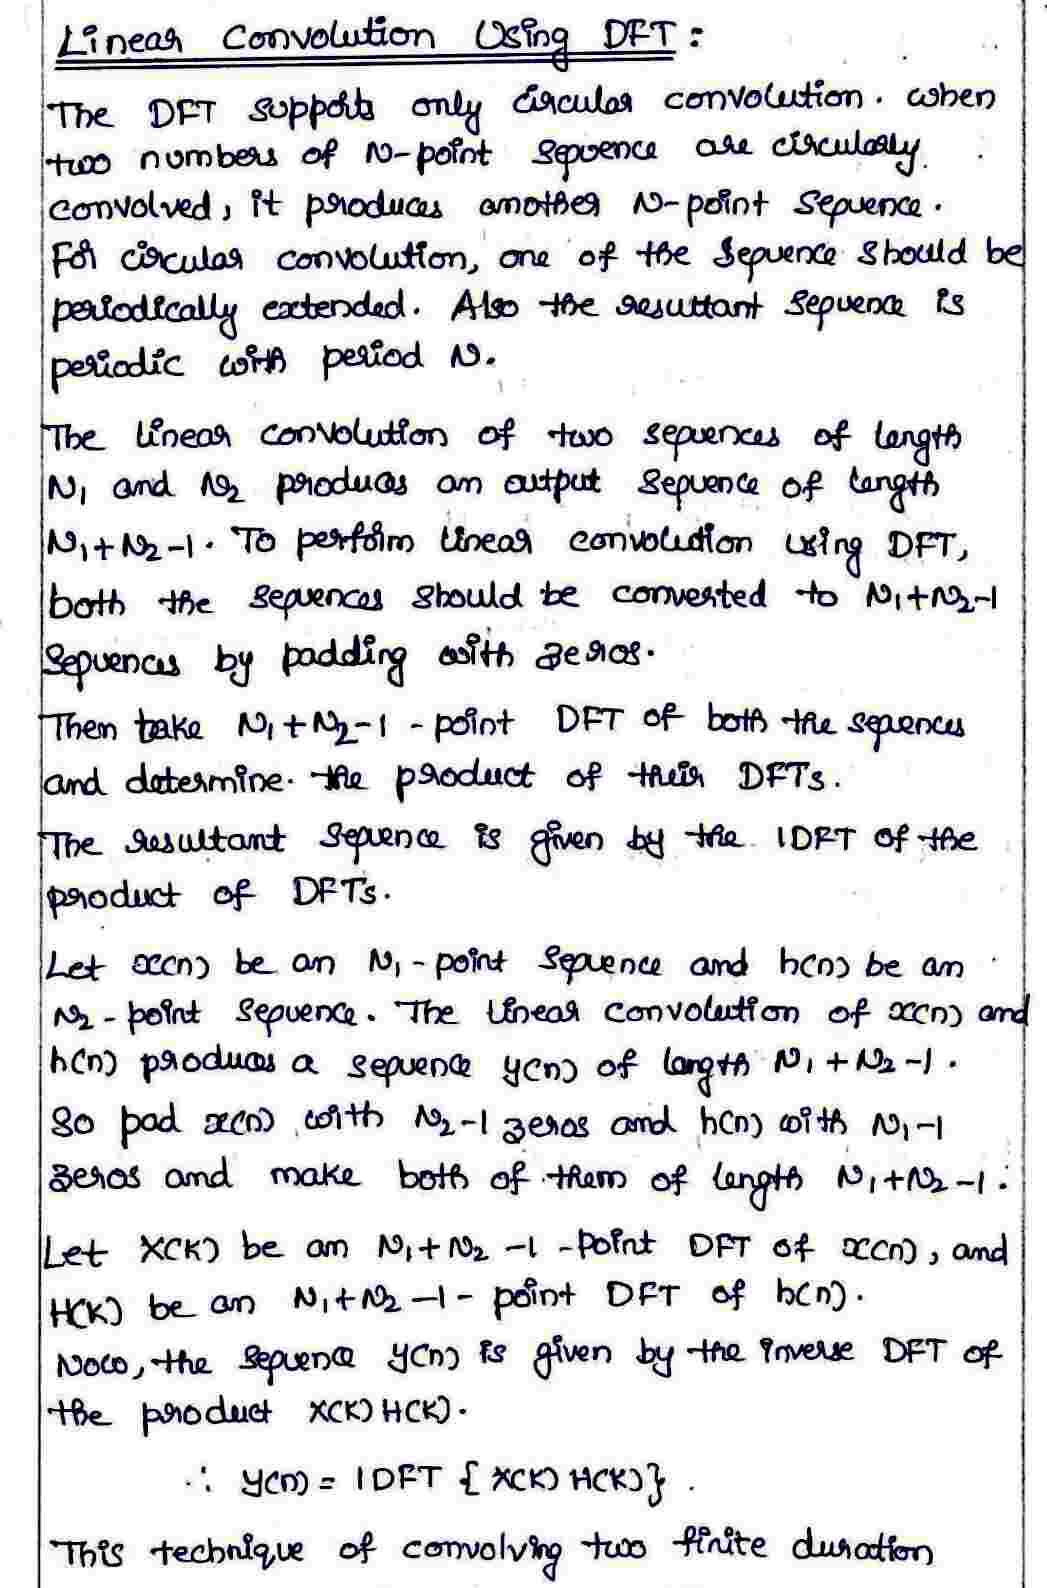 Linear Convolution Using DFT :
The DFT supports only circular convolution. when
two numbers of N-point sequence are circularly
convolved, it produces another N-point sequence.
For circular convolution, one of the sequence should be
periodically extended. Also the resultant sequence is
periodic with period N.
The linear convolution of two sequences of length
N₁ and N₂ produces an output sequence of length
N₁+N₂-1. To perform linear convolution using DFT,
both the sequences should be converted to N₁+N₂-1
sequences by padding with zeros.
Then take N₁+N₂-1 - point DFT of both the sequences
and determine. the product of their DFTs.
The resultant sequence is given by the IDFT of the
product of DFTs.
Let x(n) be an N₁ - point sequence and h(n) be an
N₂ - point sequence. The linear convolution of x(n) and
h(n) produces a sequence y(n) of length N₁ + N₂ -1.
So pad x(n) with N₂-1 zeros and h(n) with N₁-1
zeros and make both of them of length N₁+N₂-1.
Let X(K) be an N₁+N₂ -1 -point DFT of x(n), and
H(K) be an N₁+N₂ -1- point DFT of h(n).
Now, the sequence y(n) is given by the inverse DFT of
the product X(K) H(K).
∴ y(n) = IDFT { X(K) H(K) } .
This technique of convolving two finite duration